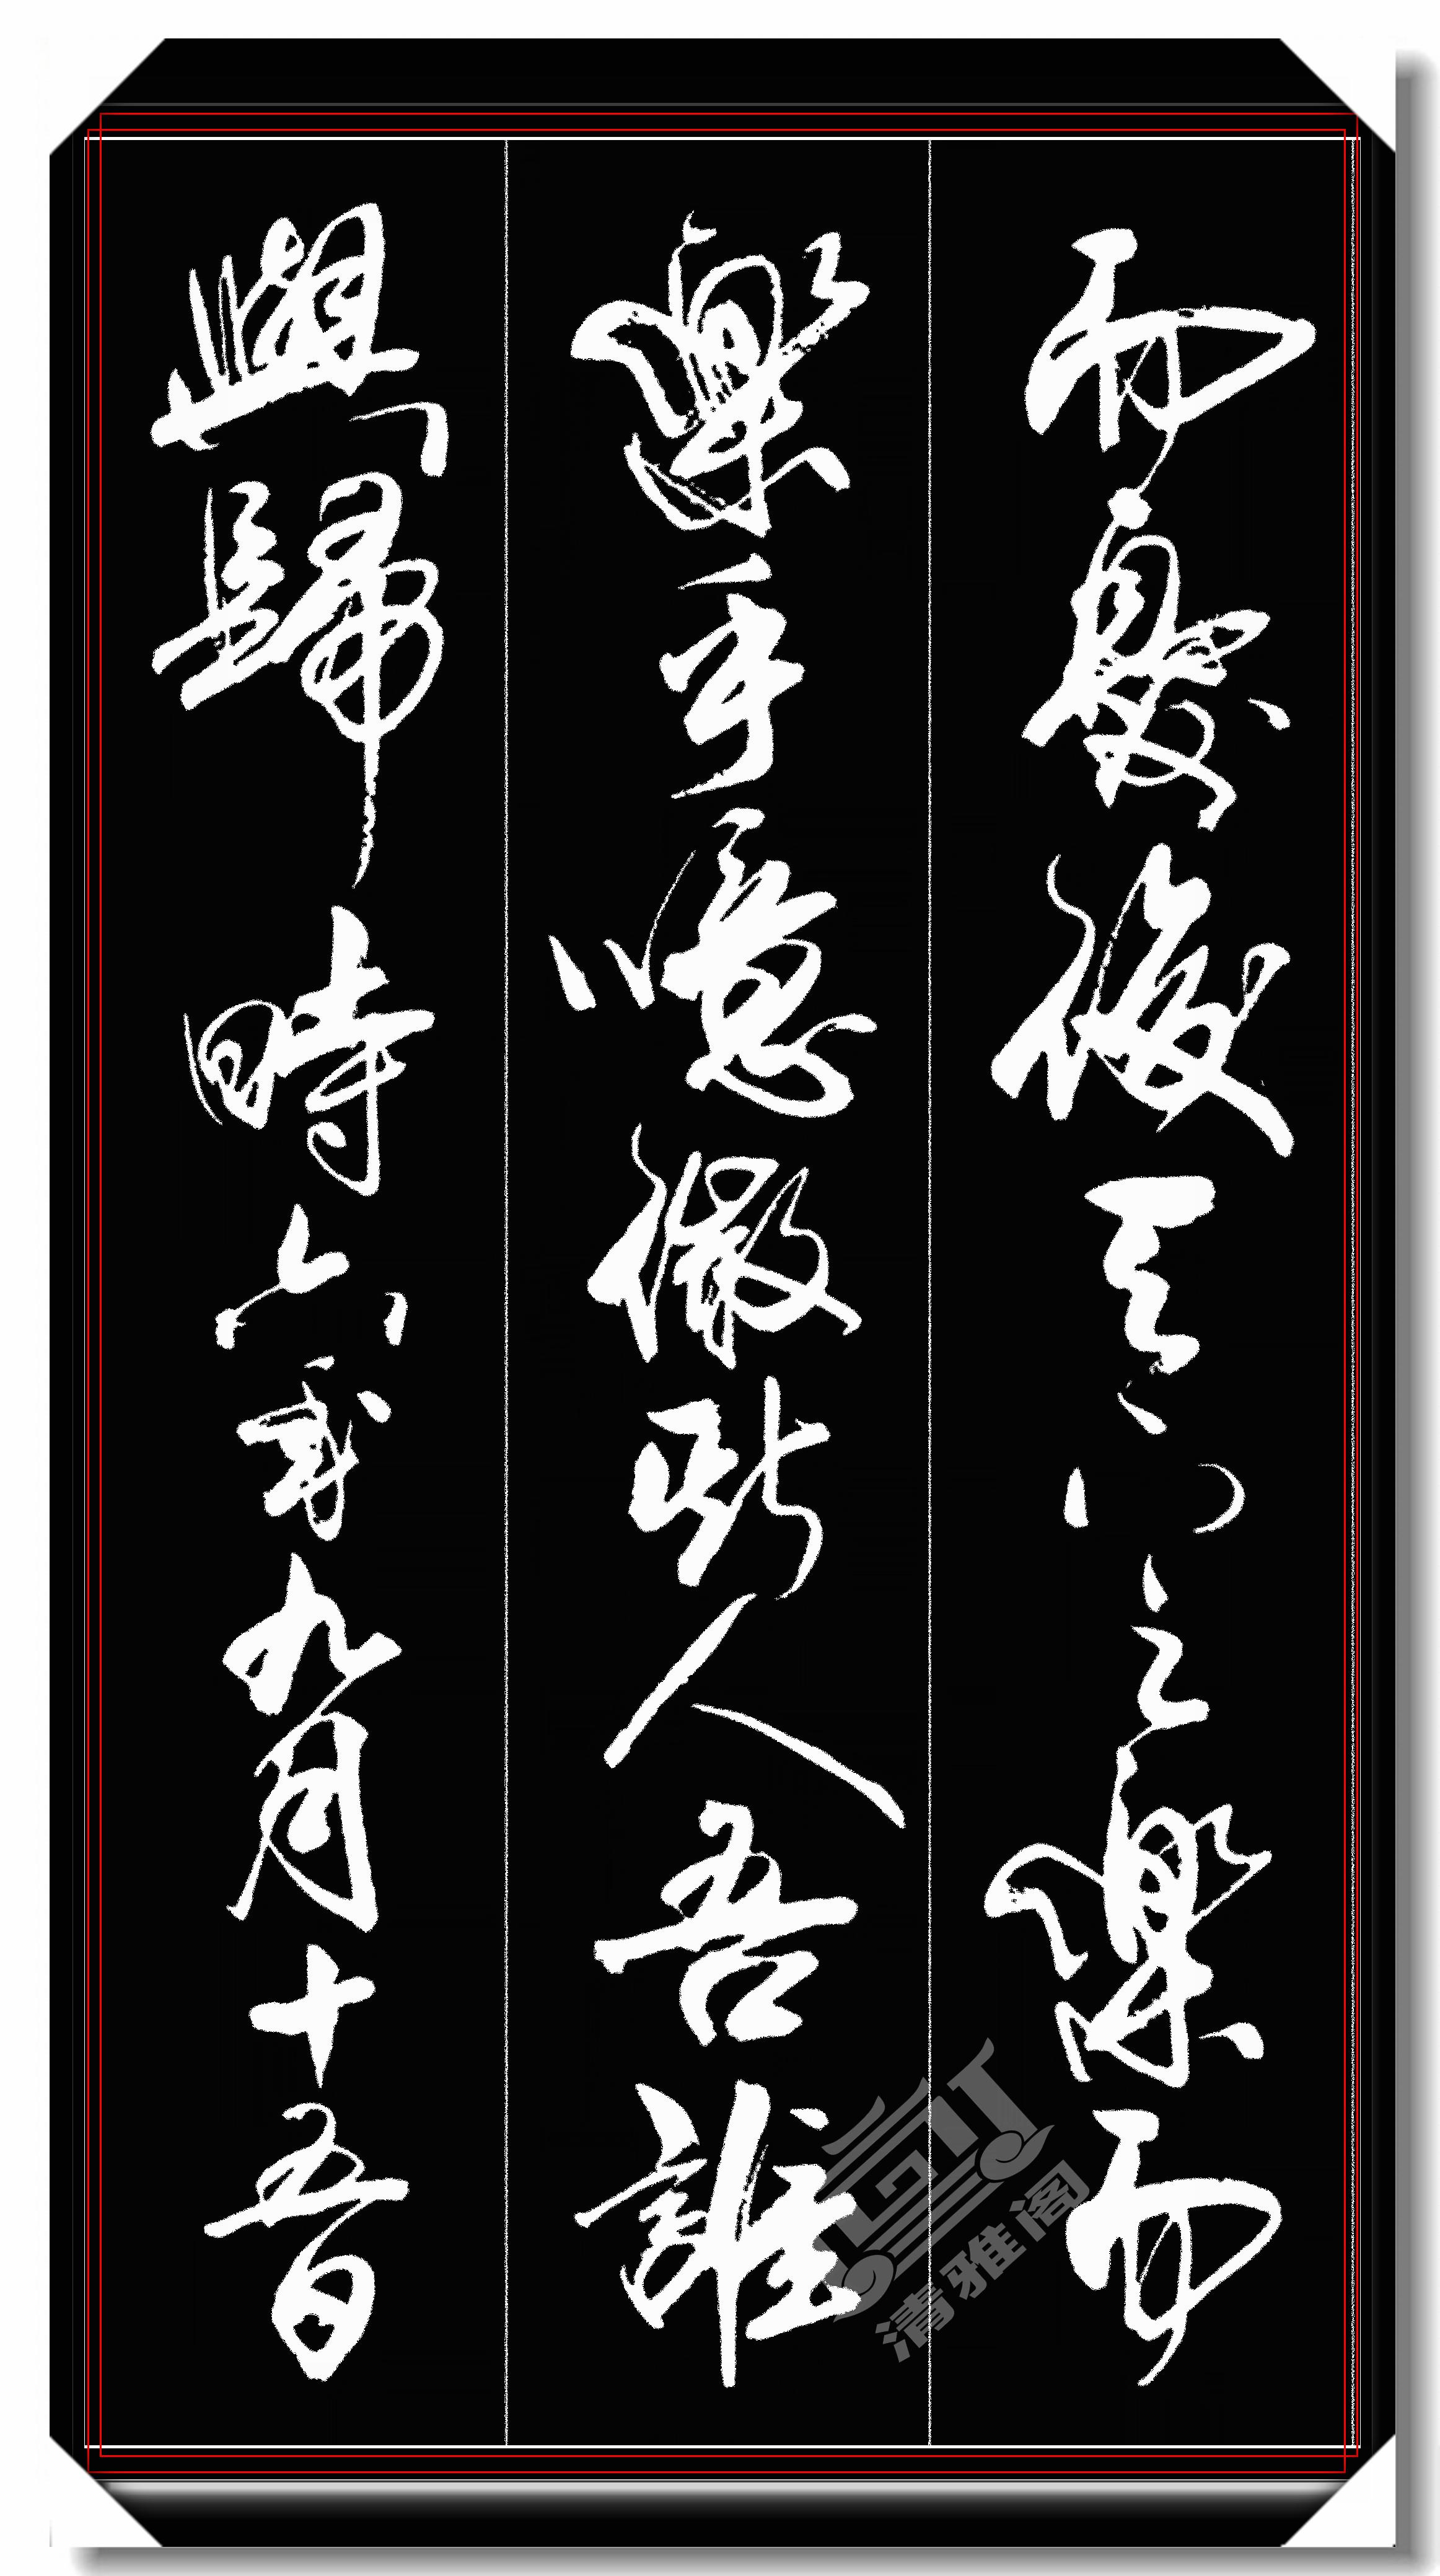 而憂後天下之樂而
樂乎噫微斯人吾誰
與歸時六九月十五日
清雅阁